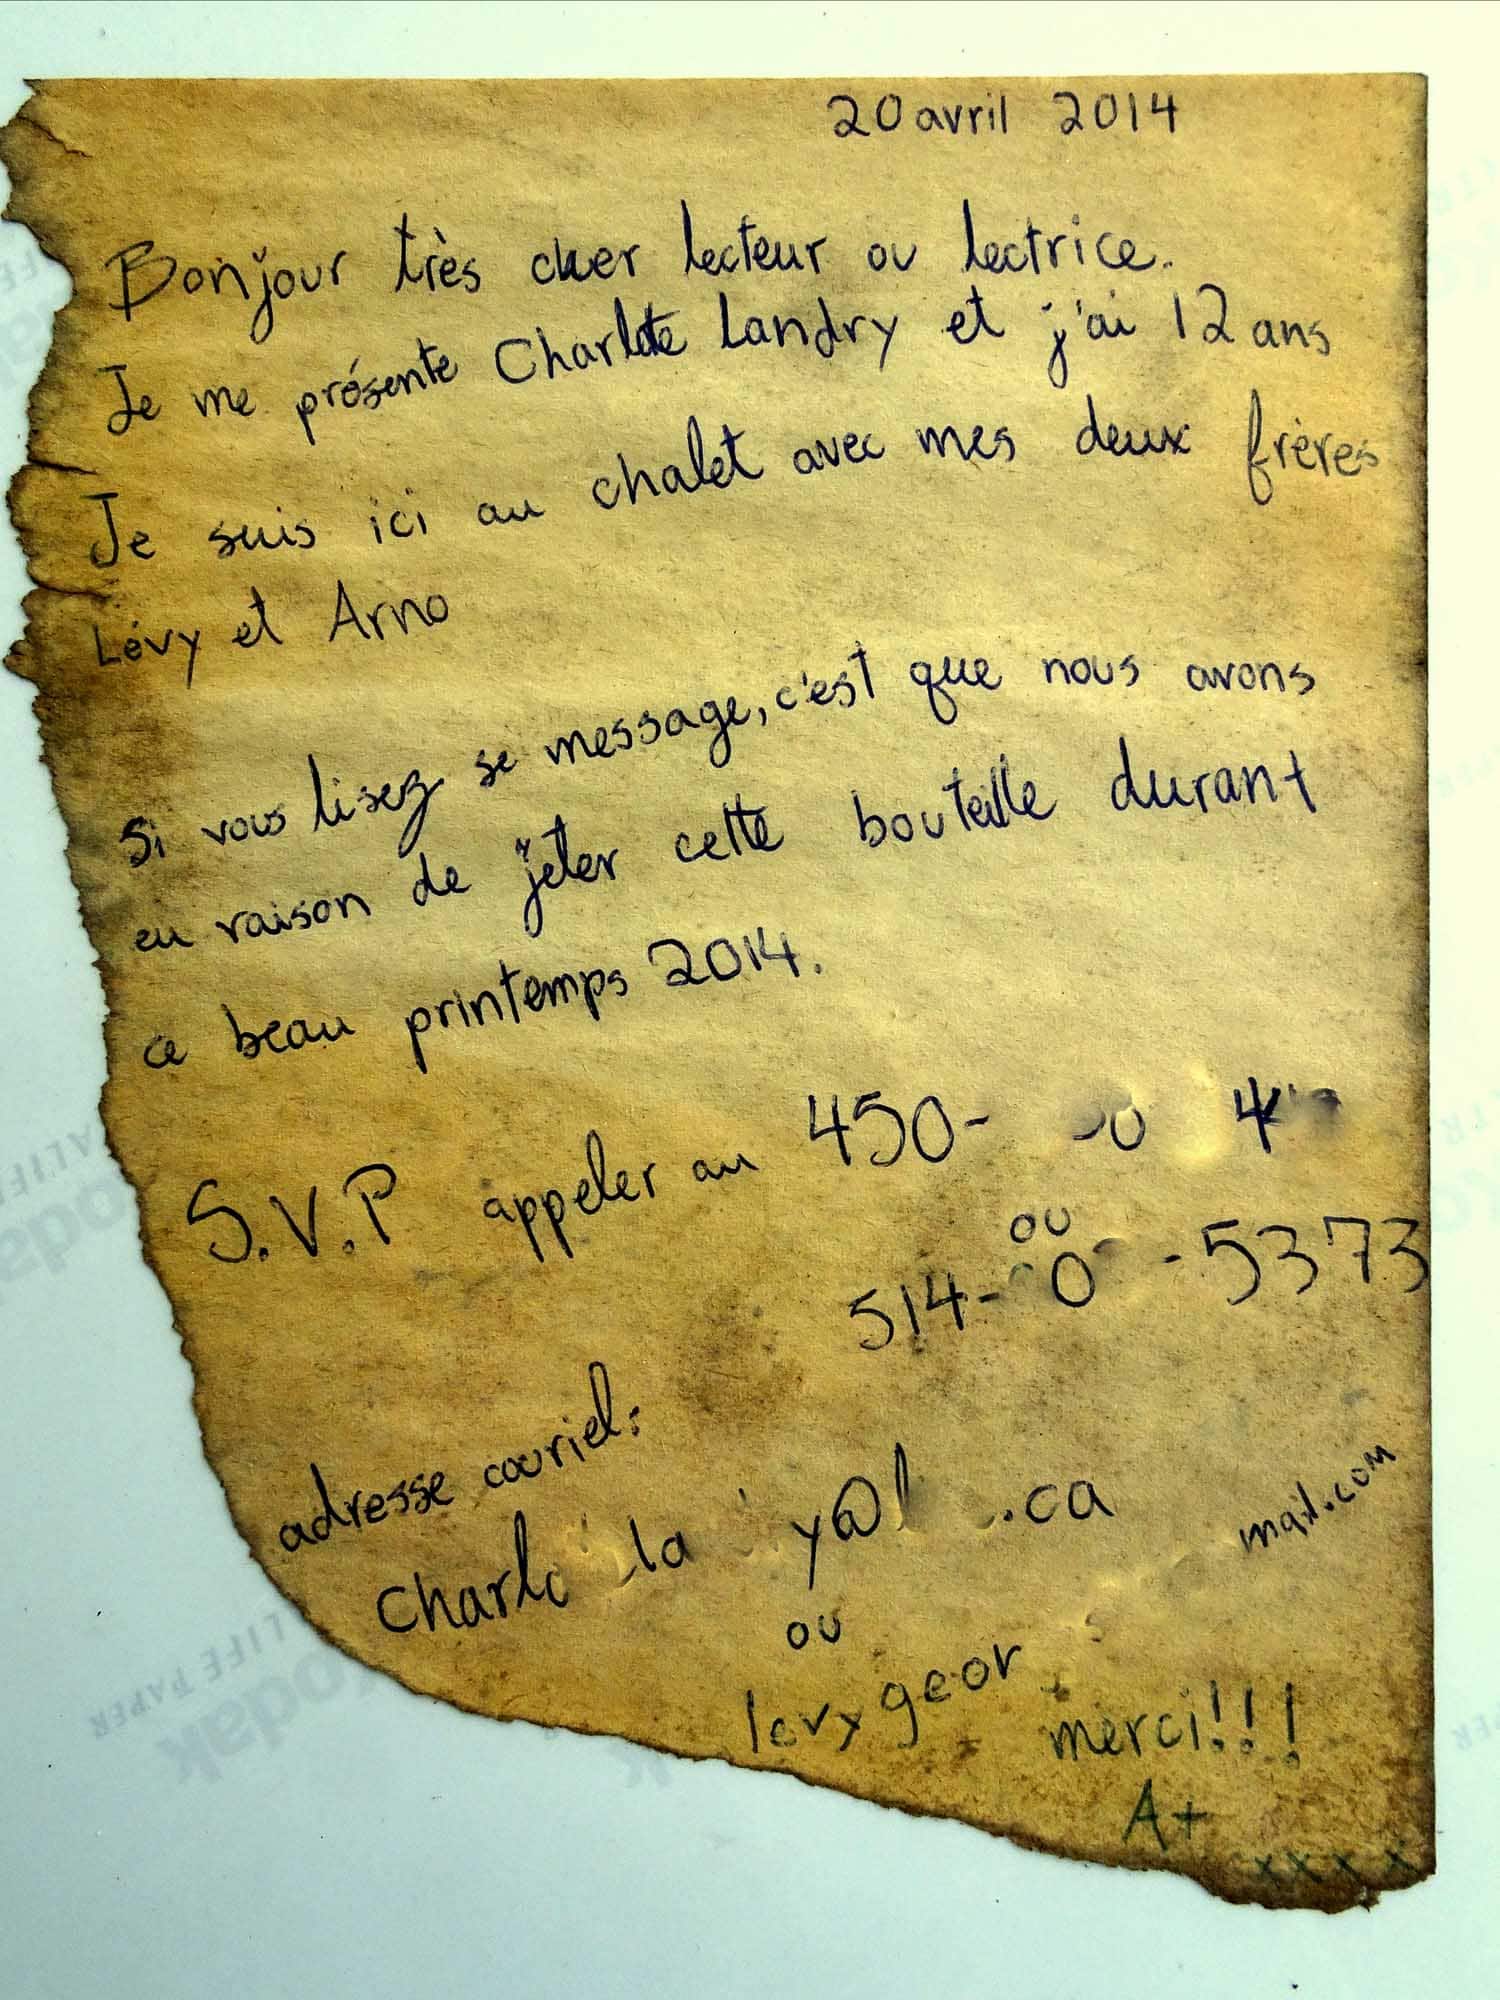 20 avril 2014
Bonjour très cher lecteur ou lectrice.
Je me présente Charlotte Landry et j'ai 12 ans
Je suis ici au chalet avec mes deux frères
Lévy et Arno
Si vous lisez se message, c'est que nous avons
eu raison de jeter cette bouteille durant
ce beau printemps 2014.
S.V.P appeler au 450-
ou
514- -5373
adresse couriel:
.ca
mail.com
ou
merci!!!
A+
xxxx